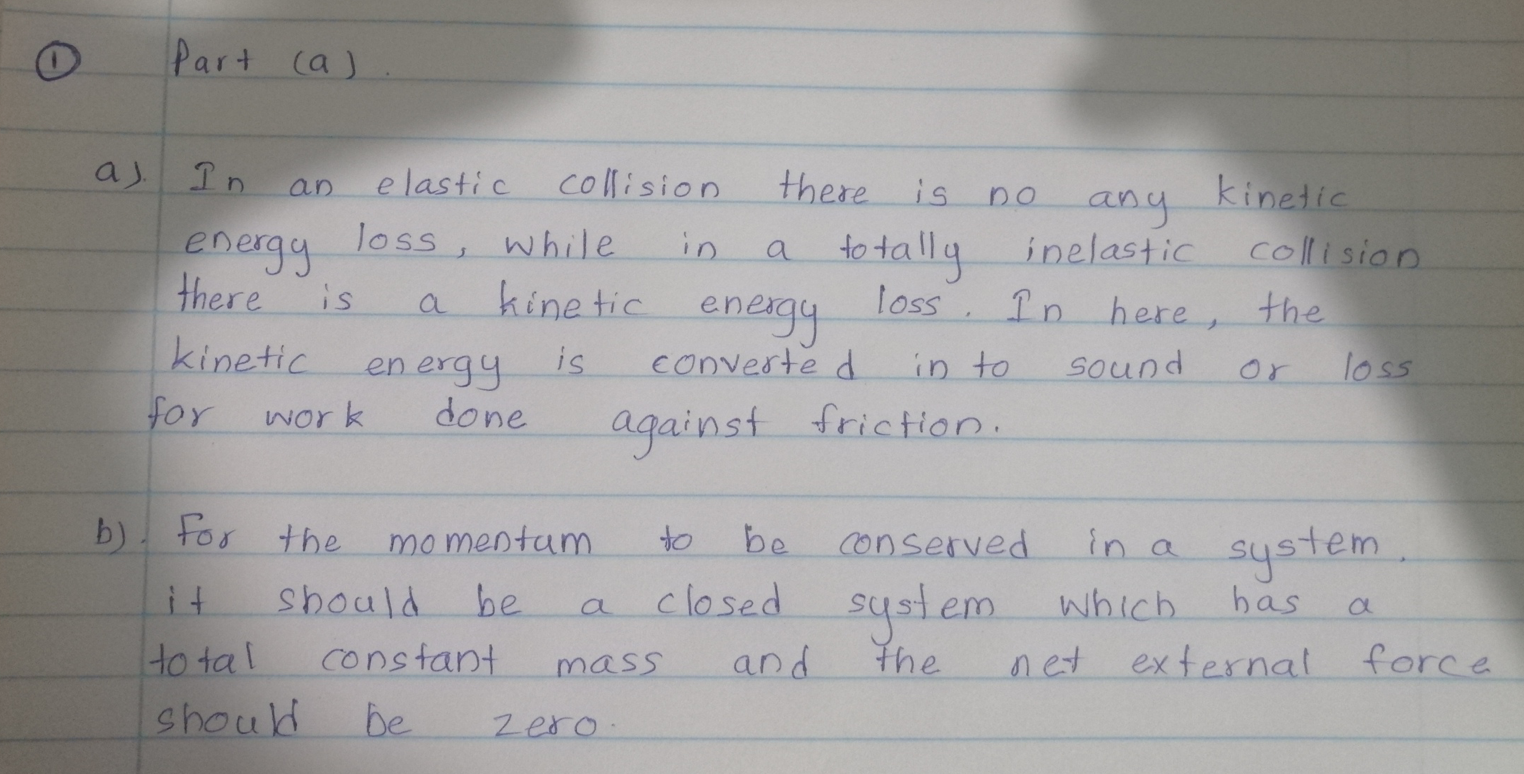 ① Part (a).
a). In an elastic collision there is no any kinetic
energy loss, while in a totally inelastic collision
there is a kinetic energy loss. In here, the
kinetic energy is converted in to sound or loss
for work done against friction.
b). For the momentum to be conserved in a system,
it should be a closed system which has a
total constant mass and the net external force
should be zero.